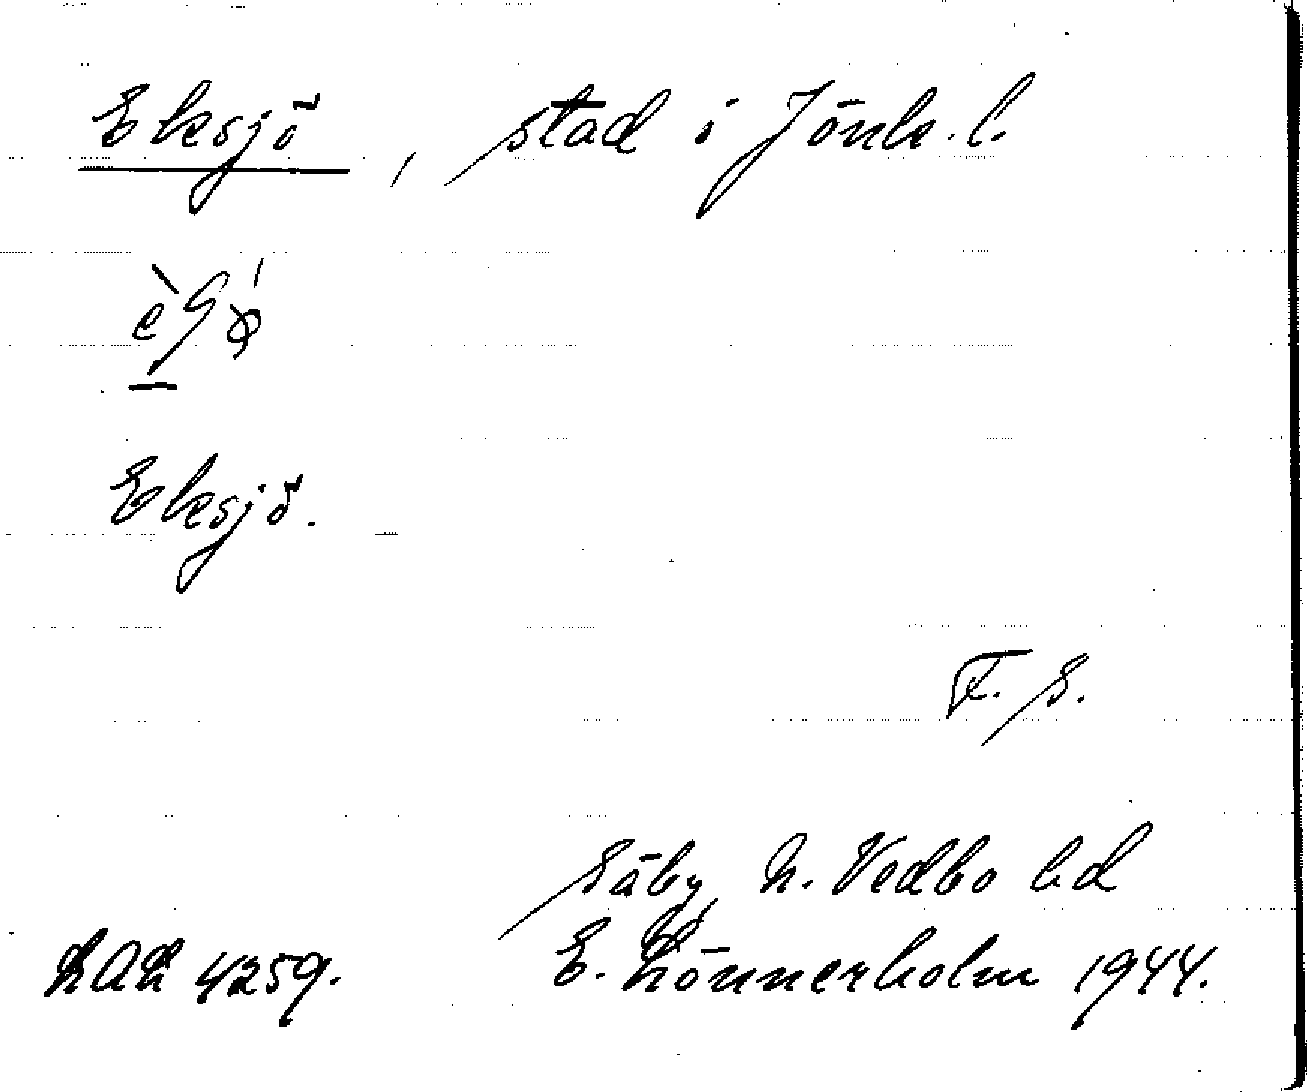 Eksjö, stad i Jönk. l.
Eksjö.
F. S.
Säby, N. Vedbo hd
E. Lönnerholm 1944.
4259.